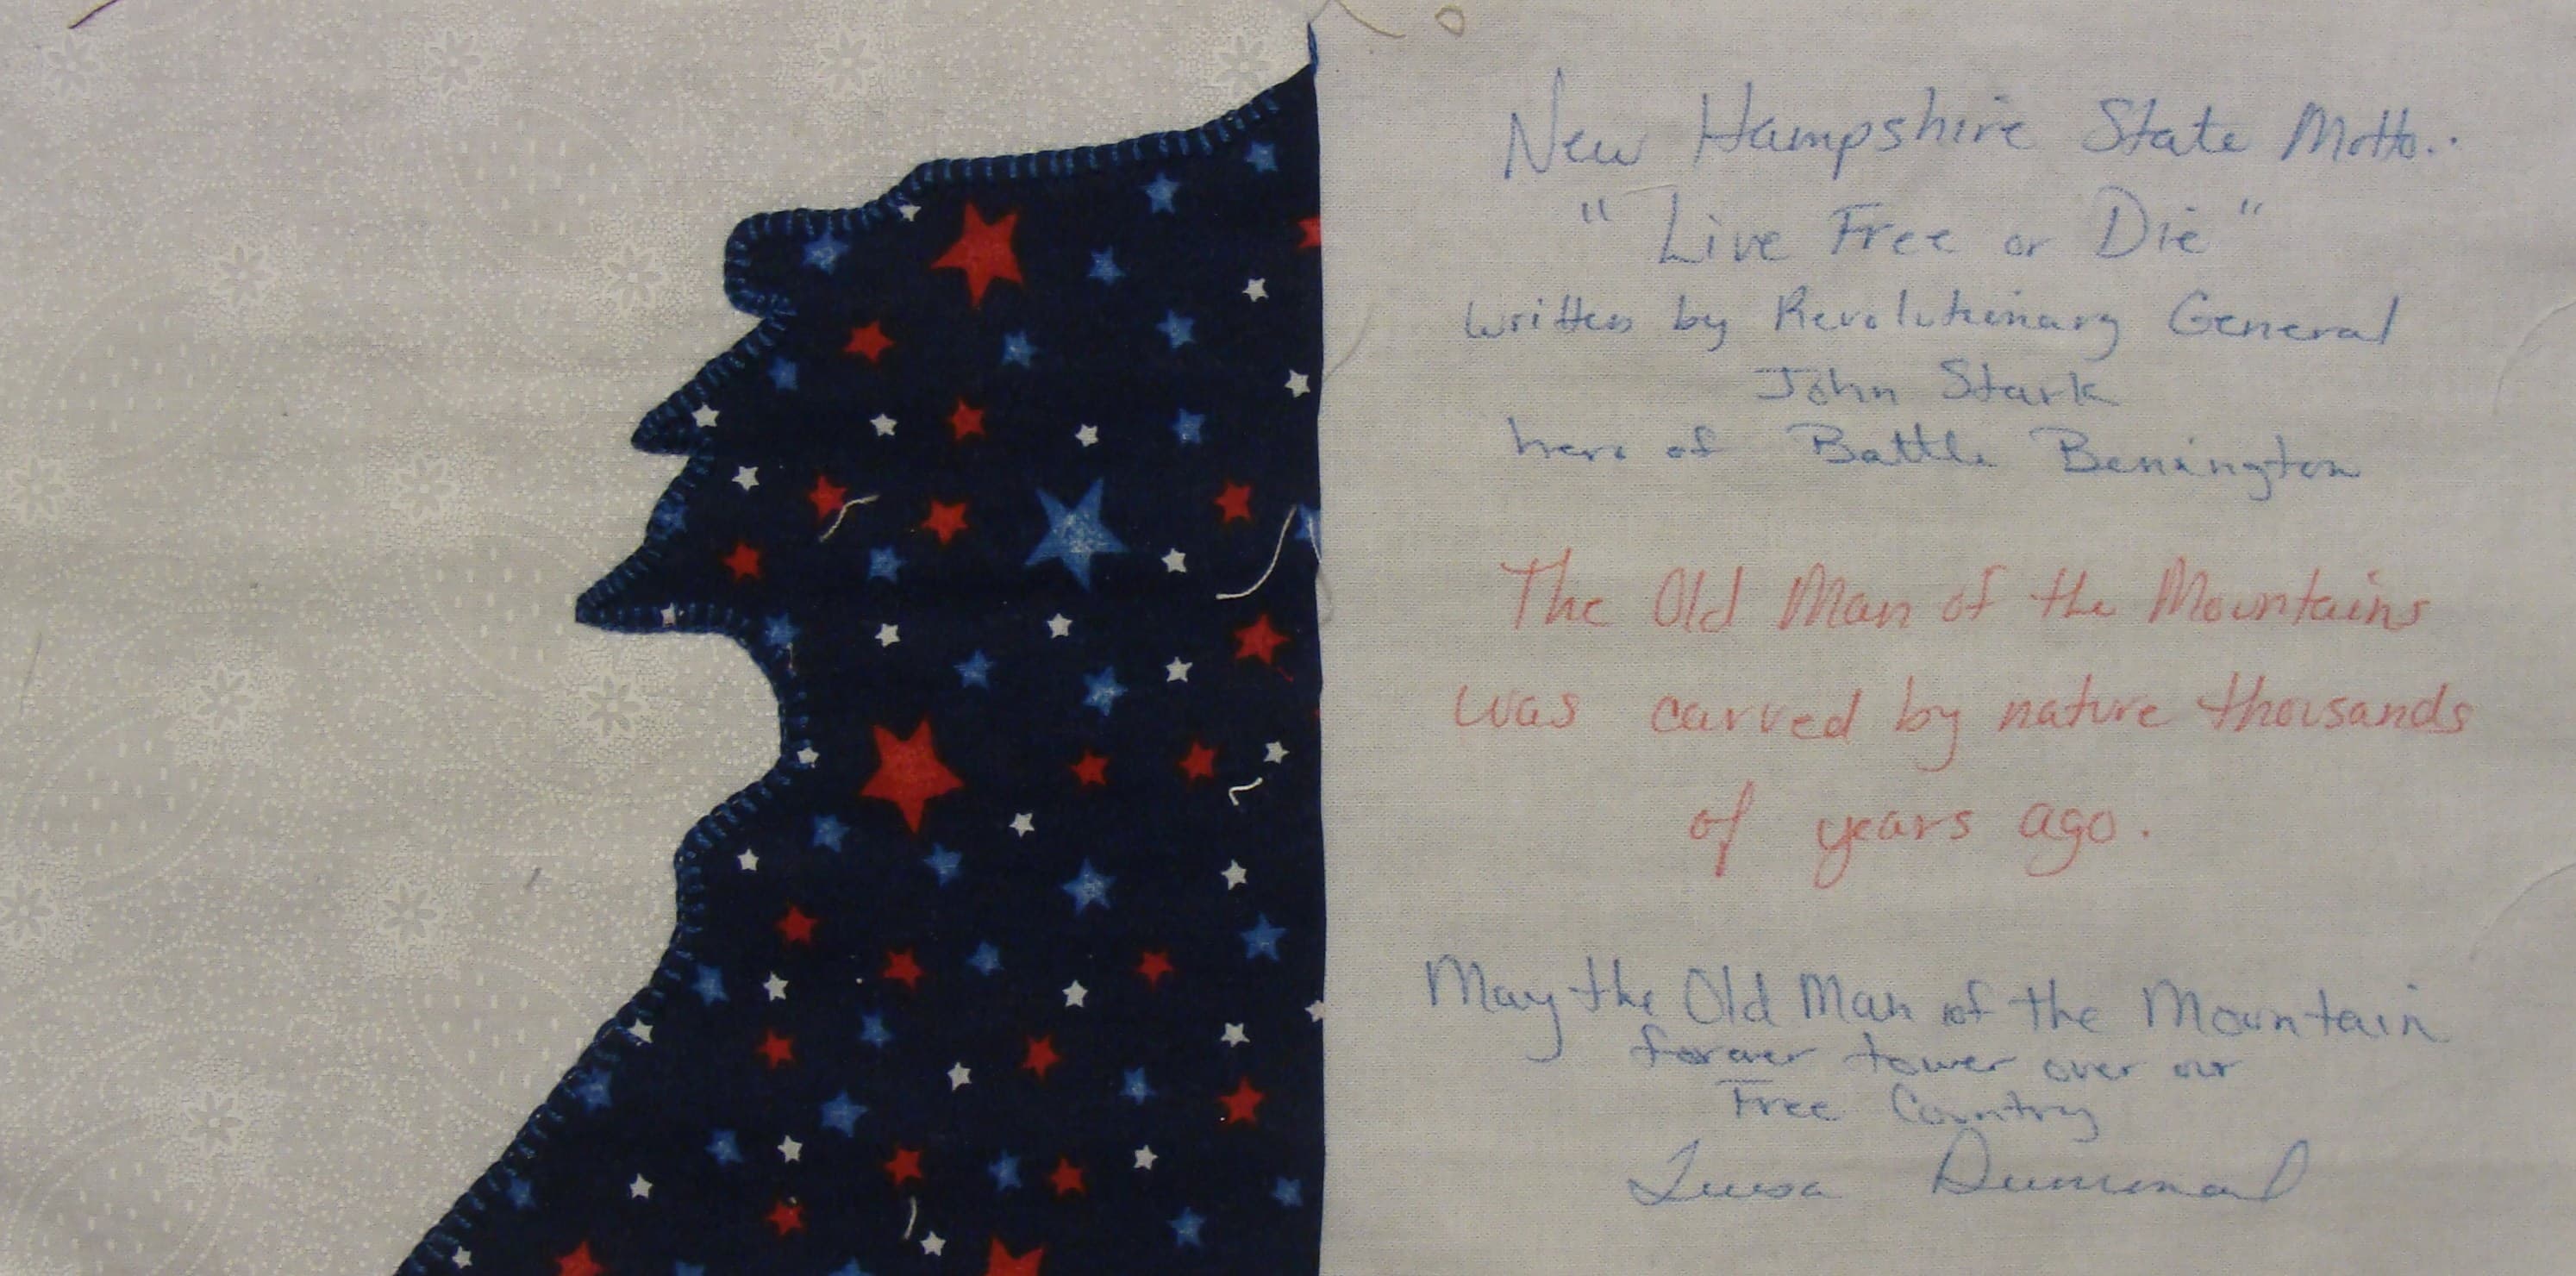 New Hampshire State Motto..
" Live Free or Die "
written by Revolutionary General
John Stark
hero of Battle Bennington
The Old Man of the Mountains
was carved by nature thousands
of years ago.
May the Old Man of the Mountain
forever tower over our
Free Country